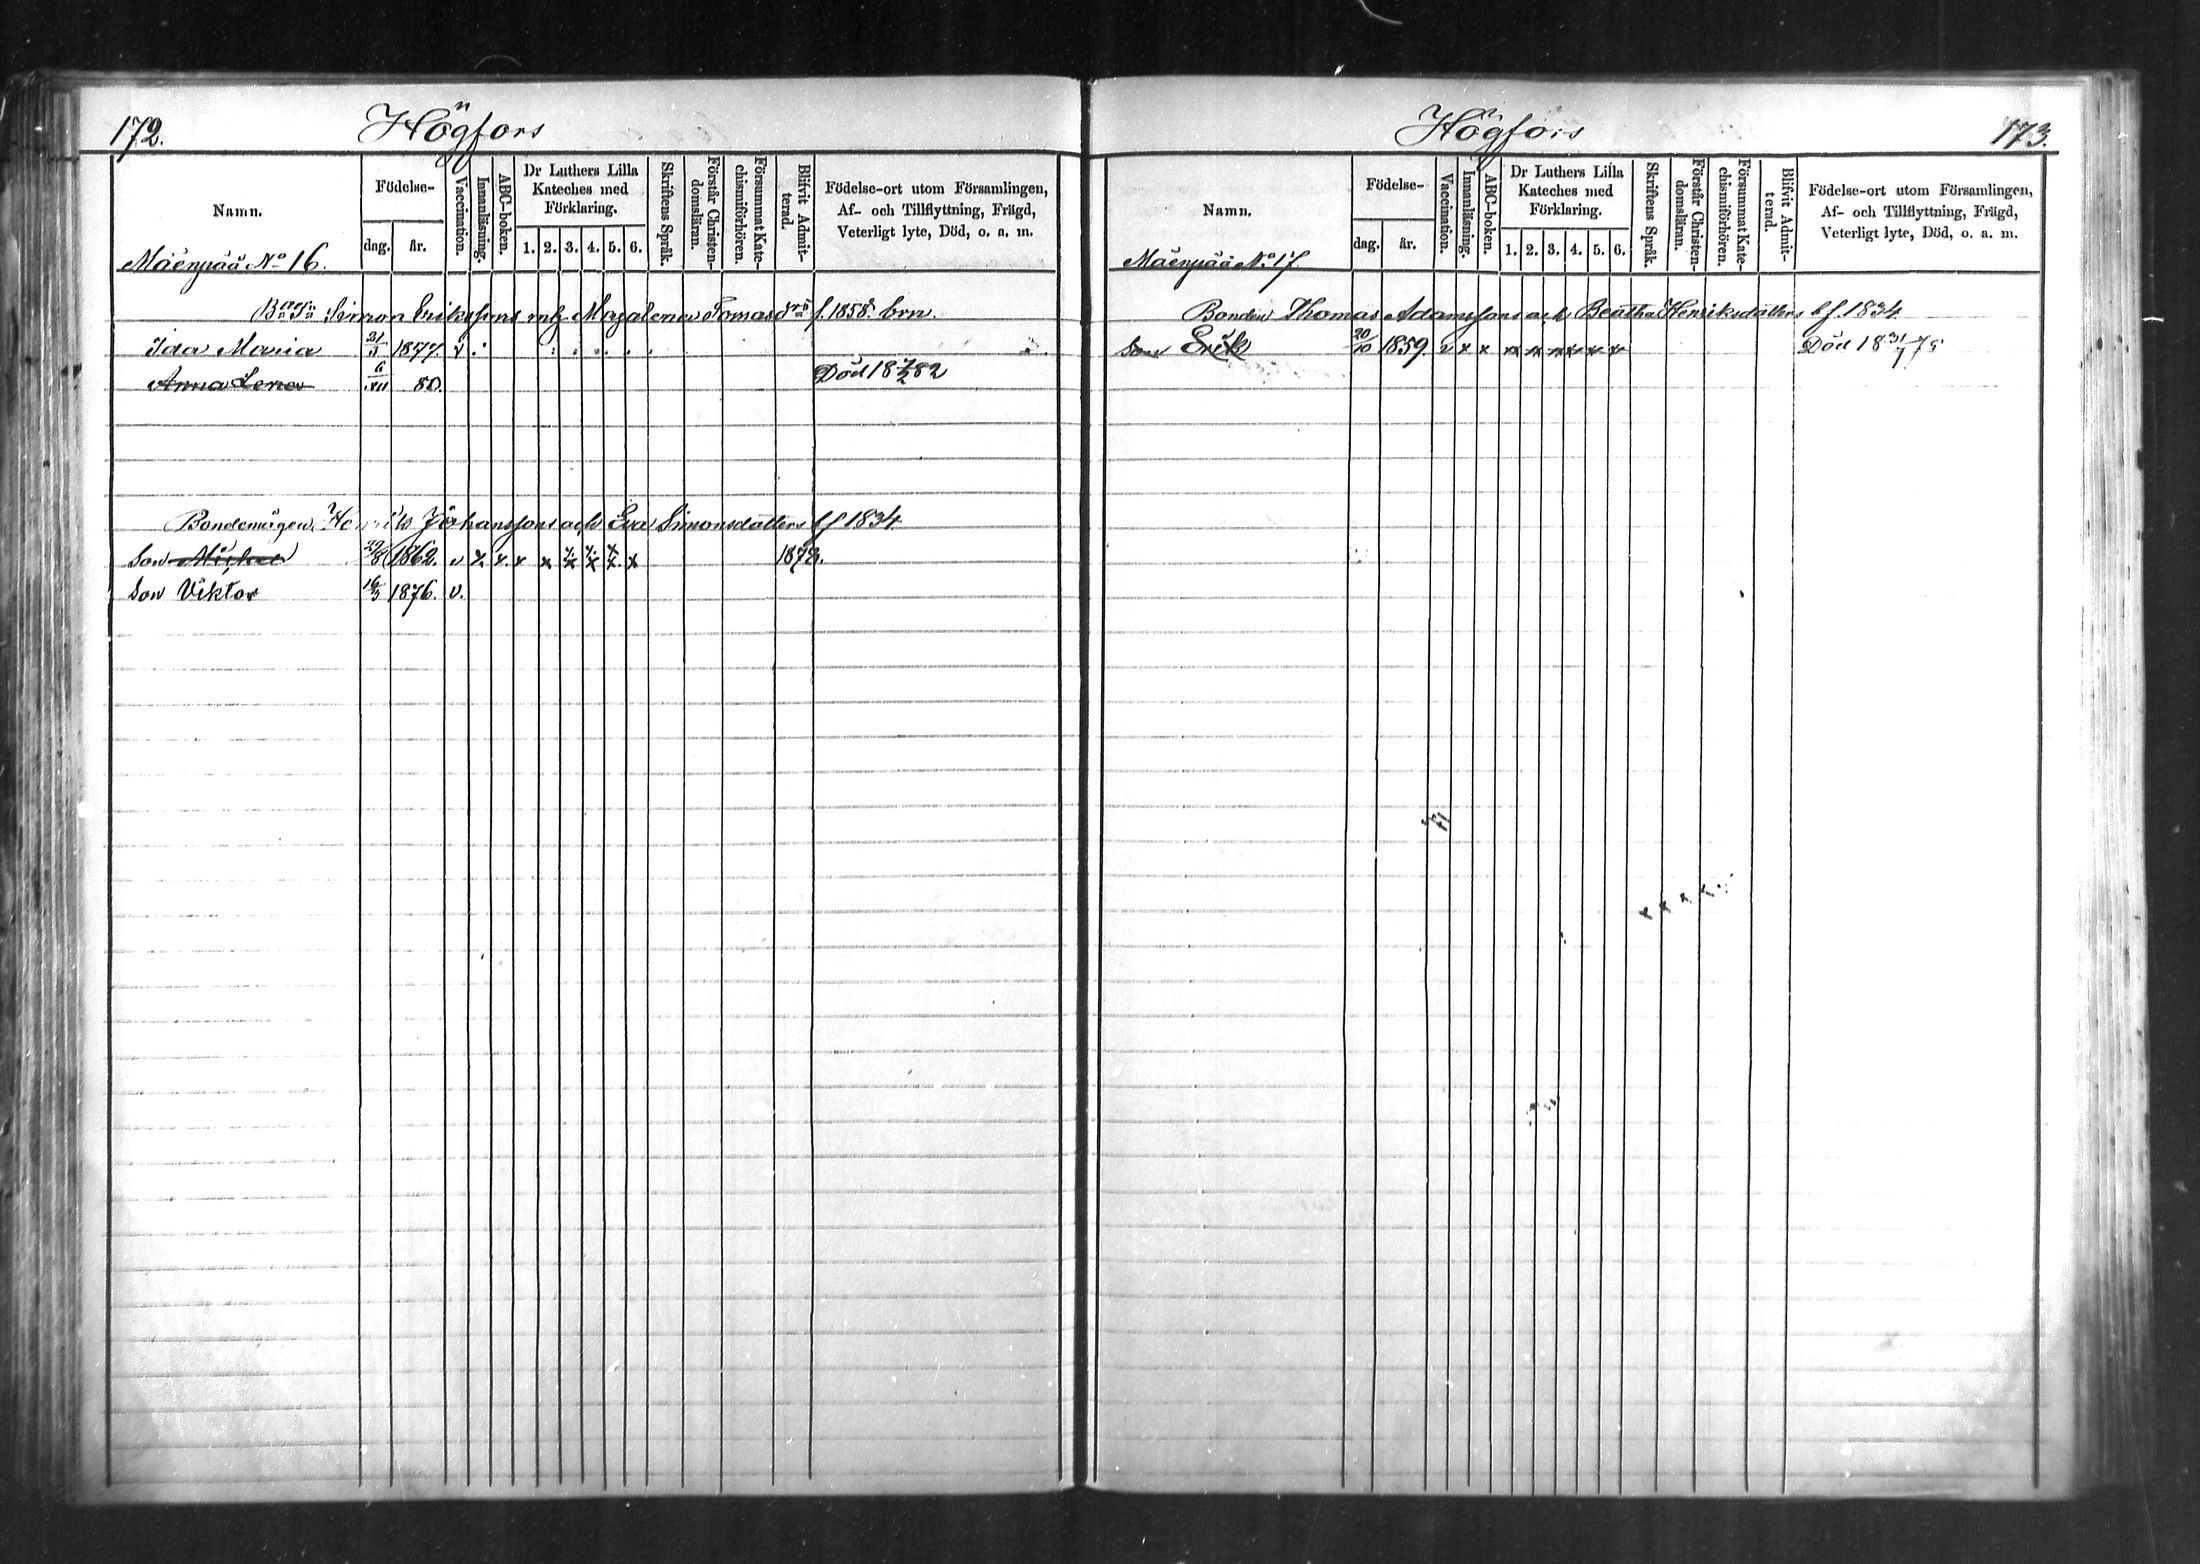 172. Högfors
Namn. Födelse- dag. år. Vaccination. Innanläsning. ABC-boken. Dr Luthers Lilla Kateches med Förklaring. 1. 2. 3. 4. 5. 6. Skriftens Språk. Förstår Christendomsläran. Försummat Katechismiförhören. Blifvit Admitterad. Födelse-ort utom Församlingen, Af- och Tillflyttning, Frägd, Veterligt lyte, Död, o. a. m.
Mäenpää No 16.
Simon Erikssons Magdalena Tomasdrs f. 1858. brn.
Ida Maria 21/3 1877. v
Anna Lena 6/XII 80. Död 18 7/2 82
Bondemågen Henriks Johanssons och Eva Simonsdotters bf 1834.
Son Michel 29/8 1862. v x x x x x x x x 1878.
Son Viktor 16/3 1876. v.
Högfors 173.
Namn. Födelse- dag. år. Vaccination. Innanläsning. ABC-boken. Dr Luthers Lilla Kateches med Förklaring. 1. 2. 3. 4. 5. 6. Skriftens Språk. Förstår Christendomsläran. Försummat Katechismiförhören. Blifvit Admitterad. Födelse-ort utom Församlingen, Af- och Tillflyttning, Frägd, Veterligt lyte, Död, o. a. m.
Mäenpää No 17.
Bonden Thomas Adamssons och Beatha Henriksdotters bf. 1834
Son Erik 20/10 1859. v x x x x x x x x Död 18 31/7 75